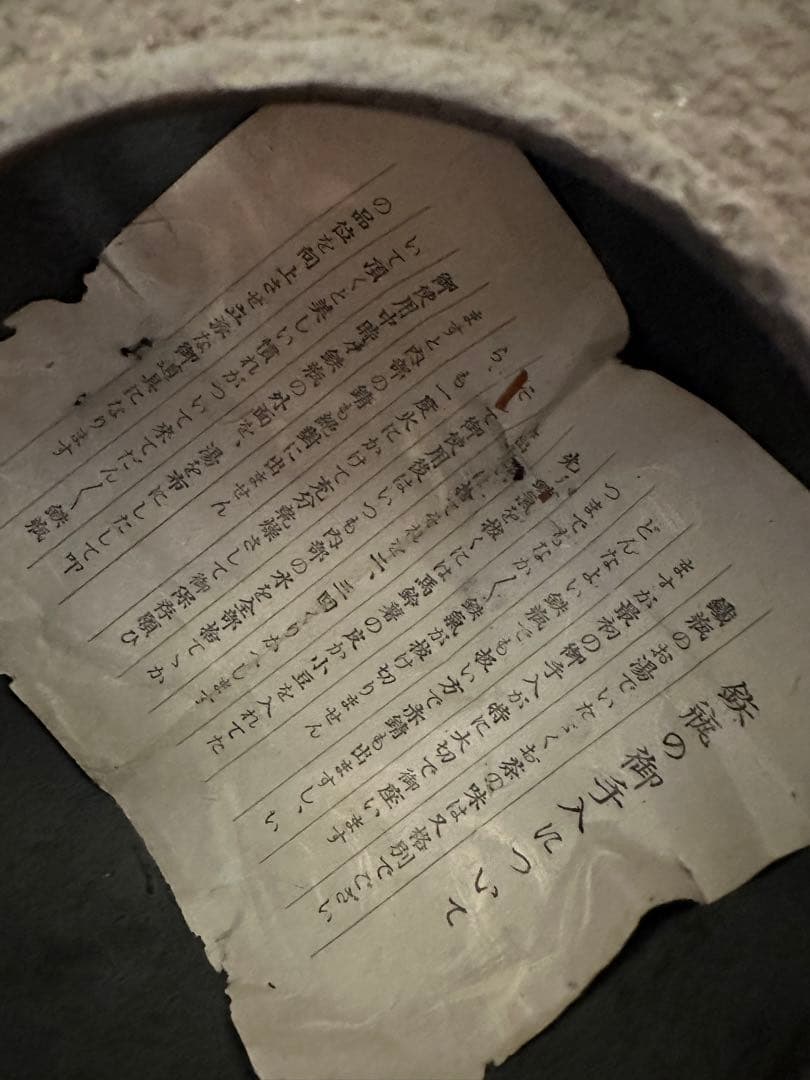 鉄瓶の御手入について
鐵瓶のお湯でいたゞくお茶の味は又格別でござい
ますが最初の御手入が特に大切で御座います
どんなよい鉄瓶でも扱い方で赤錆も出ますし、い
つまでもなか〱鉄氣が抜け切りません
先 鐵氣を抜くには馬鈴薯の皮か小豆を入れてた
に 捨てそれを二、三四
らて御使用後はいつも内部の水を全部捨てゝか
も一度火にかけて充分乾燥さして御保存願ひ
ますと内部の錆も絶對に出ません
御使用中時々鉄瓶の外面を、湯を布にしたして叩
いて頂くと美しい慣れがついて来てだん〱鉄瓶
の品位を向上させ立派な御道具になります